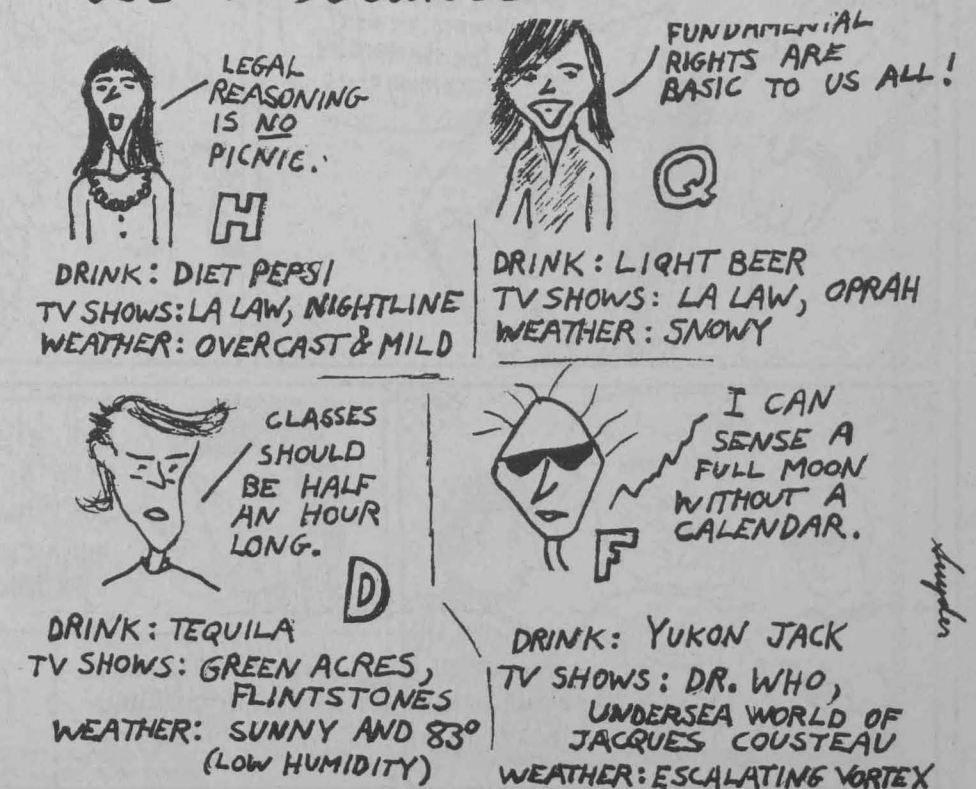 LEGAL
REASONING
IS NO
PICNIC.
H
DRINK: DIET PEPSI
TV SHOWS: LA LAW, NIGHTLINE
WEATHER: OVERCAST & MILD
FUNDAMENTAL
RIGHTS ARE
BASIC TO US ALL!
Q
DRINK: LIGHT BEER
TV SHOWS: LA LAW, OPRAH
WEATHER: SNOWY
CLASSES
SHOULD
BE HALF
AN HOUR
LONG.
D
DRINK: TEQUILA
TV SHOWS: GREEN ACRES,
FLINTSTONES
WEATHER: SUNNY AND 83°
(LOW HUMIDITY)
I CAN
SENSE A
FULL MOON
WITHOUT A
CALENDAR.
F
DRINK: YUKON JACK
TV SHOWS: DR. WHO,
UNDERSEA WORLD OF
JACQUES COUSTEAU
WEATHER: ESCALATING VORTEX
Snyder